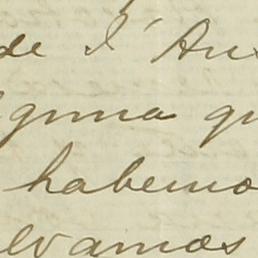 de I' Aus
gnna qu
habemo
lvamos